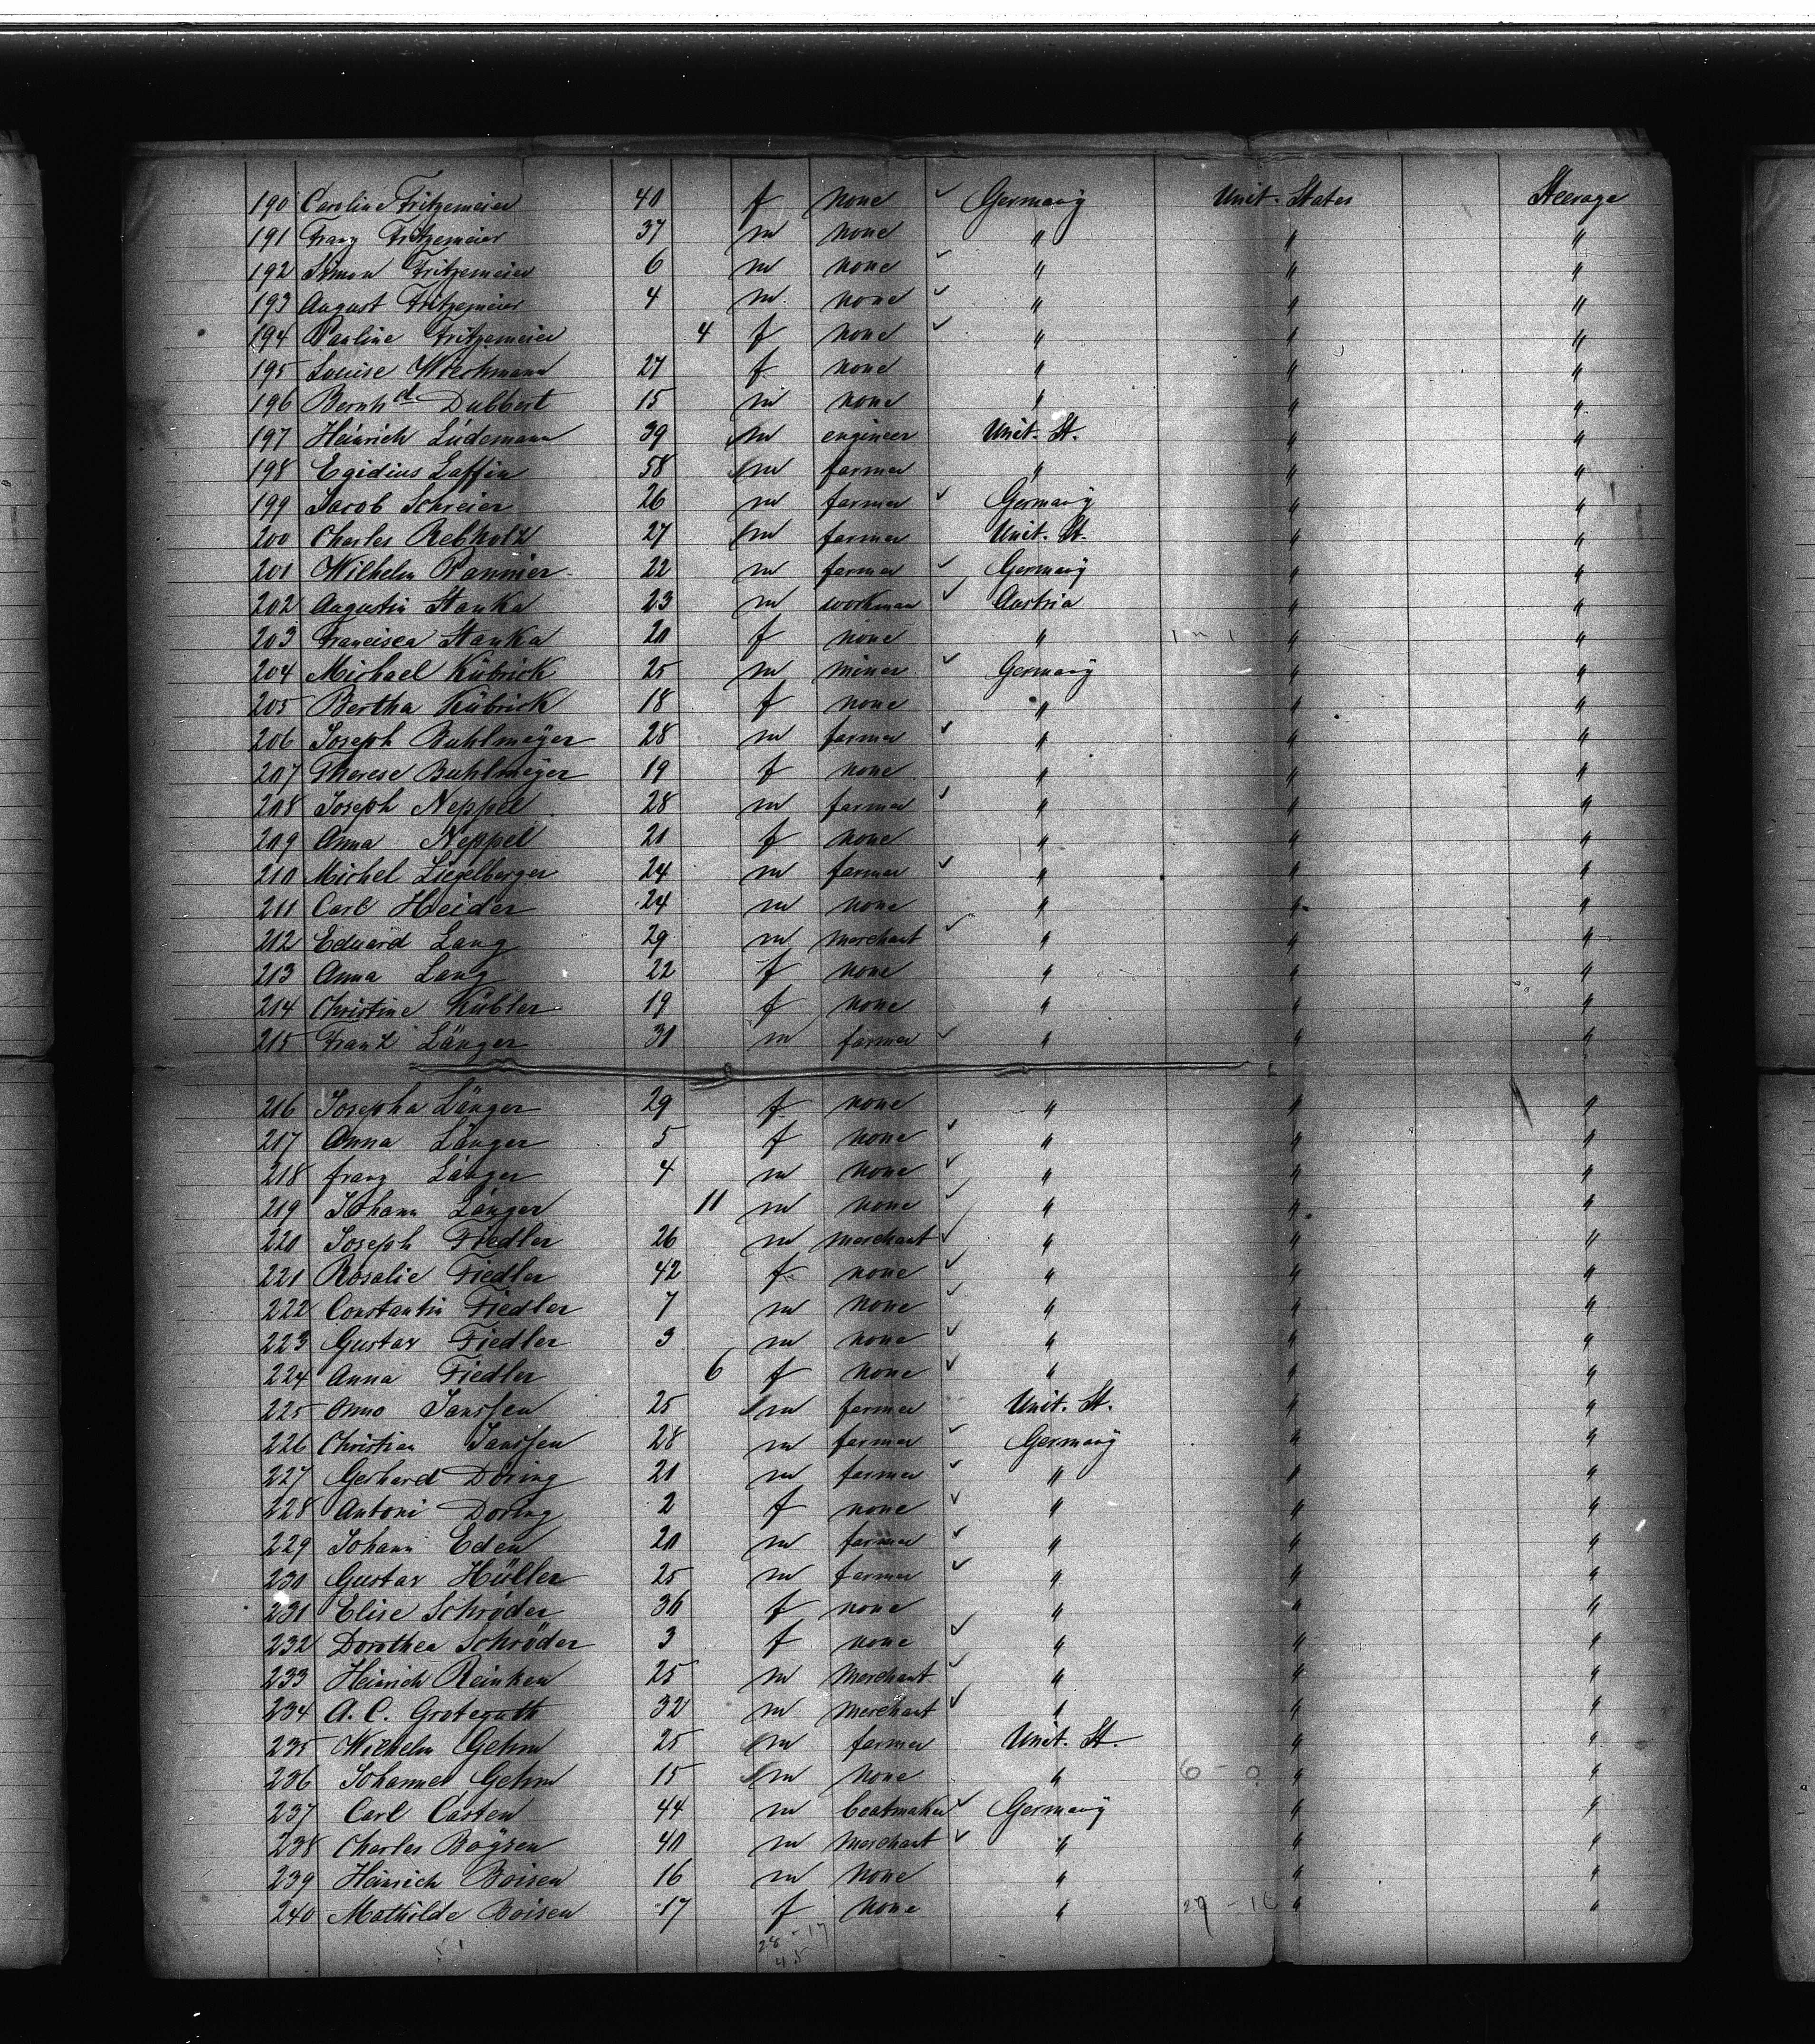 190 Caroline Fritzemeier 40 f none ✓ Germany Unit. States Steerage
191 Franz Fritzemeier 37 m none " " "
192 Simon Fritzemeier 6 m none ✓ " " "
193 August Fritzemeier 4 m none ✓ " " "
194 Pauline Fritzemeier 4 f none ✓ " " "
195 Louise Wiechmann 27 f none " " "
196 Bernhd Dubbert 15 m none " " "
197 Heinrich Lüdemann 39 m engineer Unit. St. " "
198 Egidius Laffin 58 m farmer " " "
199 Jacob Schreier 26 m farmer ✓ Germany " "
200 Charles Rebholz 27 m farmer Unit. St. " "
201 Wilhelm Pannier 22 m farmer ✓ Germany " "
202 Augustin Stanka 23 m workman ✓ Austria " "
203 Francisca Stanka 20 f none " " "
204 Michael Kübrick 25 m miner ✓ Germany " "
205 Bertha Kübrick 18 f none " " "
206 Joseph Buhlmeÿer 28 m farmer ✓ " " "
207 Therese Buhlmeÿer 19 f none " " "
208 Joseph Neppel 28 m farmer ✓ " " "
209 Anna Neppel 21 f none " " "
210 Michel Liegelberger 24 m farmer ✓ " " "
211 Carl Heider 24 m none " " "
212 Eduard Lang 29 m merchant ✓ " " "
213 Anna Lang 22 f none " " "
214 Christine Kübler 19 f none " " "
215 Franz Länger 31 m farmer ✓ " " "
216 Josepha Länger 29 f none " " "
217 Anna Länger 5 f none ✓ " " "
218 franz Länger 4 m none ✓ " " "
219 Johann Länger 11 m none ✓ " " "
220 Joseph Fiedler 26 m merchant ✓ " " "
221 Rosalie Fiedler 42 f none ✓ " " "
222 Constantin Fiedler 7 m none ✓ " " "
223 Gustav Fiedler 3 m none ✓ " " "
224 Anna Fiedler 6 f none ✓ " " "
225 Onno Janssen 25 m farmer Unit. St. " "
226 Christian Janssen 28 m farmer ✓ Germany " "
227 Gerhard Döring 21 m farmer ✓ " " "
228 Antoni Doring 2 f none ✓ " " "
229 Johann Eden 20 m farmer ✓ " " "
230 Gustav Hüller 25 m farmer ✓ " " "
231 Elise Schröder 36 f none " " "
232 Dorothea Schröder 3 f none ✓ " " "
233 Heinrich Reinken 25 m merchant ✓ " " "
234 A. C. Groteguth 32 m merchant ✓ " " "
235 Wilhelm Gehm 25 m farmer Unit. St. " "
236 Johannes Gehm 15 m none " 6 - 0 " "
237 Carl Casten 44 m boatmaker ✓ Germany " "
238 Charles Boÿsen 40 m merchant ✓ " " "
239 Heinrich Boisen 16 m none " " "
240 Mathilde Boisen 17 f none " " "
28 - 17
45